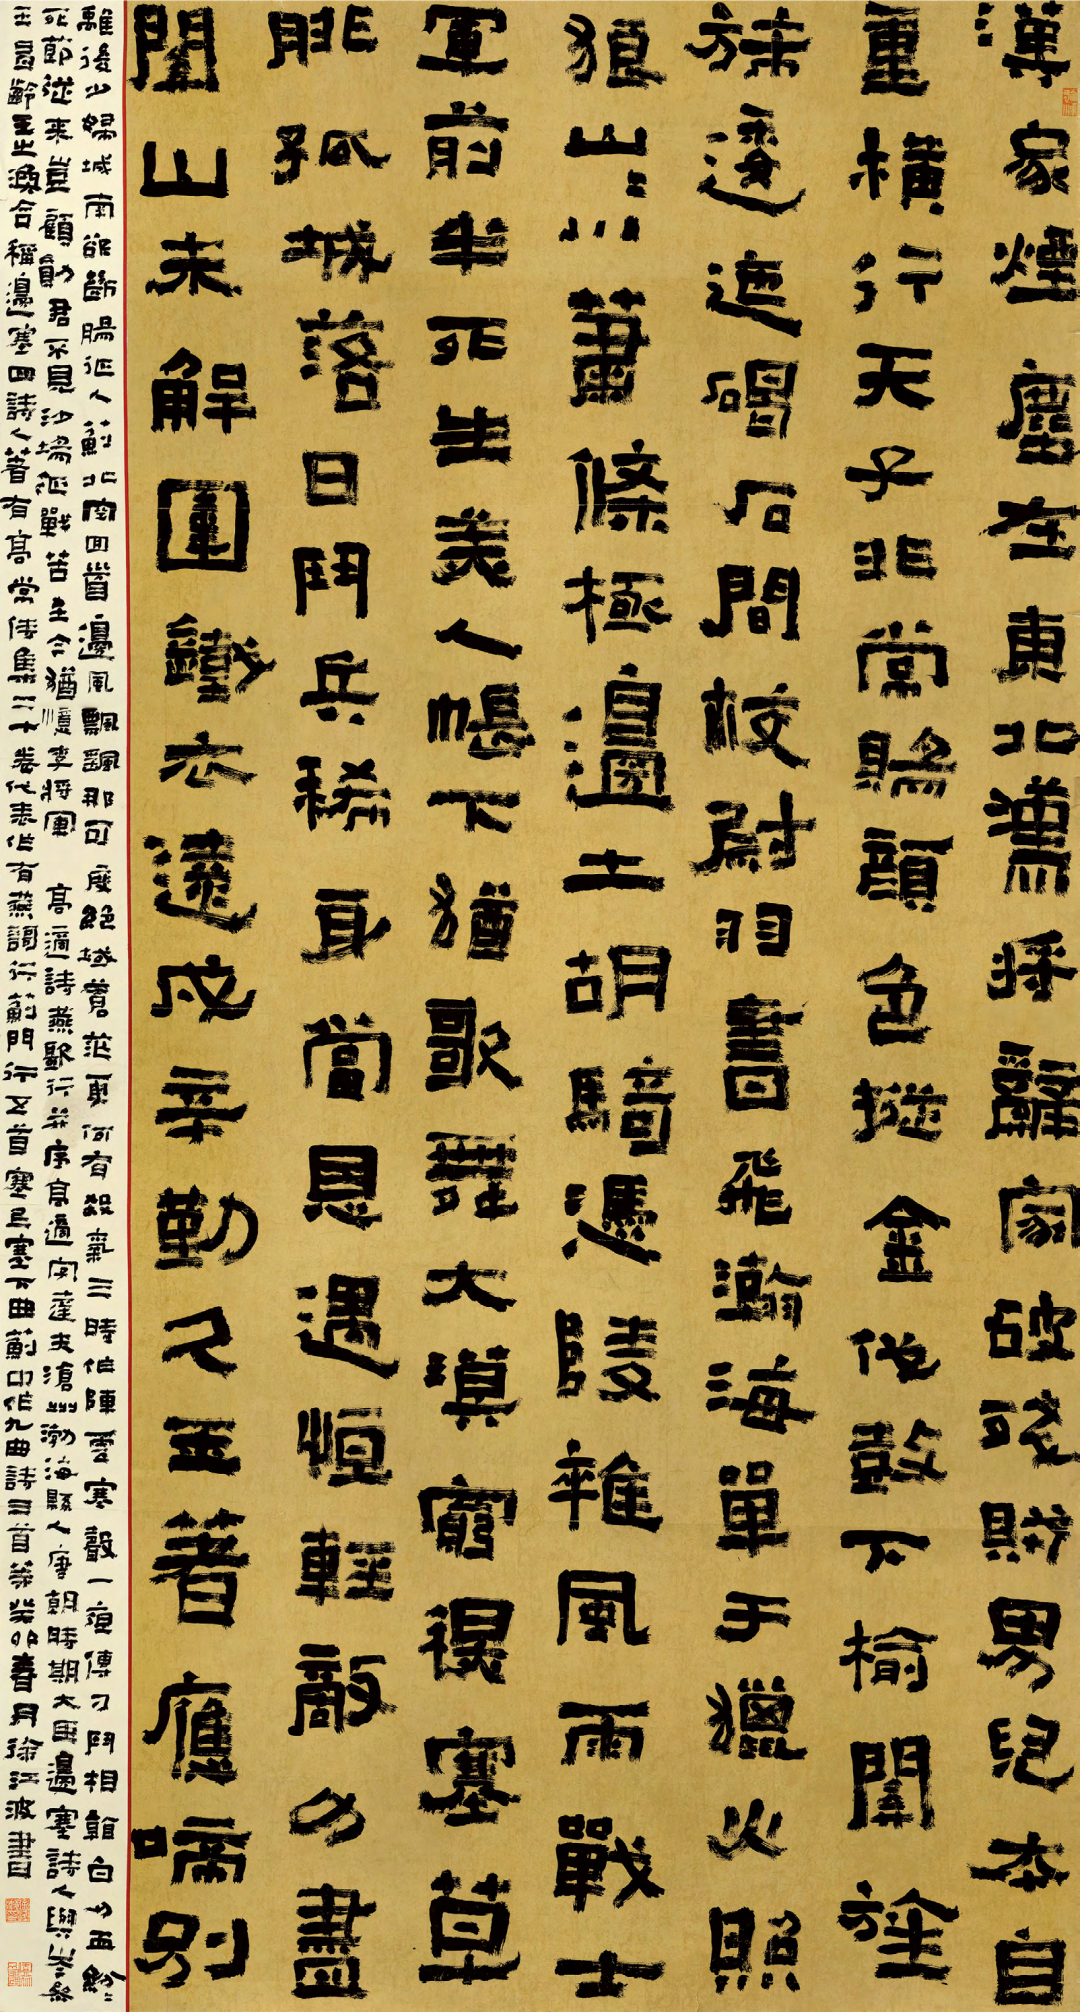 漢家煙塵在東北漢將辭家破殘賊男兒本自
重橫行天子非常賜顏色摐金伐鼓下榆關旌
旆逶迤碣石間校尉羽書飛瀚海單于獵火照
狼山〻川蕭條極邊土胡騎憑陵雜風雨戰士
軍前半死生美人帳下猶歌舞大漠窮秋塞草
腓孤城落日鬥兵稀身當恩遇恆輕敵力盡
關山未解圍鐵衣遠戍辛勤久玉著應啼別
離後少婦城南欲斷腸征人薊北空回首邊風飄飄那可度絕域蒼茫更何有殺氣三時作陣雲寒聲一夜傳刁鬥相看白刃血紛〻
死節從來豈顧勛君不見沙場征戰苦至今猶憶李將軍 高適詩燕歌行并序高適字達夫滄州渤海縣人唐朝時期大臣邊塞詩人與岑參
王昌齡王之渙合稱邊塞四詩人著有高常侍集二十卷代表作有燕調行薊門行五首塞上塞下曲薊中作九曲詩三首等癸卯春月徐江波書